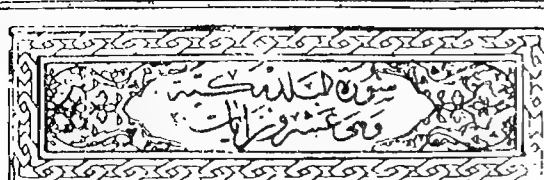 سورة البلد مكية
وهي عشرون آيات